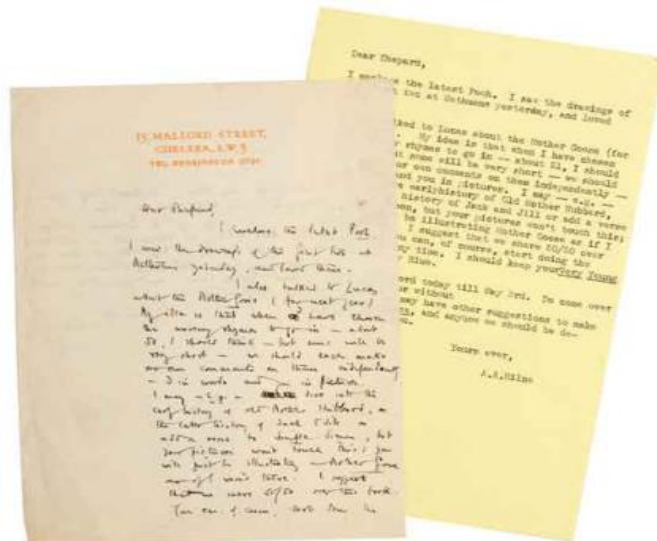 13 MALLORD STREET,
CHELSEA, S.W.3
TEL. KENSINGTON
I enclose the latest Pooh.
I saw the drawings of the first lot at
Methuens yesterday, and loved them.
I also talked to Lucas
about the Mother Goose (for next year)
My idea is that when I have chosen
the nursery rhymes to go in — about
I should think — but some will be
very short — we should each make
our own comments on them independently
— I in words and you in pictures.
I may — e.g. — dive into the
early history of Old Mother Hubbard, or
the later history of Jack & Jill or
add a verse to Simple Simon, but
your pictures won't touch this; you
will just be illustrating Mother Goose
as if I weren't there. I suggest
that we share 50/50 over this book.
You can, of course, start doing the
Dear Shepard,
I enclose the latest Pooh. I saw the drawings of
lot at Methuens yesterday, and loved
talked to Lucas about the Mother Goose (for
My idea is that when I have chosen
rhymes to go in — about I should
some will be very short — we should
our own comments on them independently —
and you in pictures. I may — e.g. —
early history of Old Mother Hubbard,
history of Jack and Jill or add a verse
but your pictures can't touch this;
be illustrating Mother Goose as if I
I suggest that we share 50/50 over
can, of course, start doing the
time. I should keep your Very Young
today till May 3rd. Do come over
or without
may have other suggestions to make
and anyhow we should be de-
Yours ever,
A.A.Milne